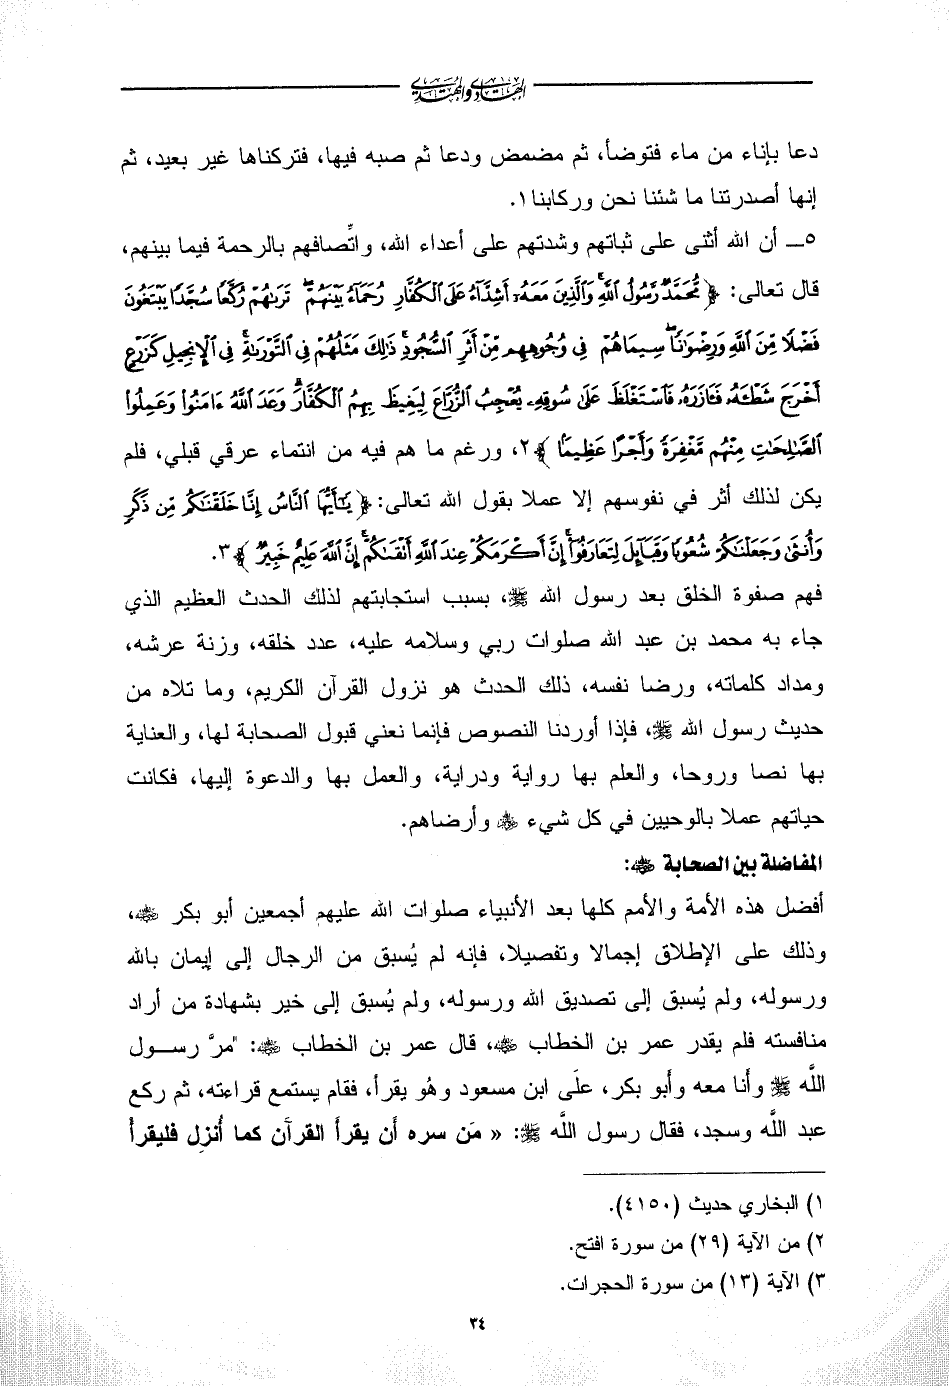 الهادي والمهتدي
دعا بإناء من ماء فتوضأ، ثم مضمض ودعا ثم صبه فيها، فتركناها غير بعيد، ثم
إنها أصدرتنا ما شئنا نحن وركابنا١.
٥ـ أن الله أثنى على ثباتهم وشدتهم على أعداء الله، واتِّصافهم بالرحمة فيما بينهم،
قال تعالى: ﴿ مُّحَمَّدٌ رَّسُولُ اللَّهِ وَالَّذِينَ مَعَهُ أَشِدَّاءُ عَلَى الْكُفَّارِ رُحَمَاءُ بَيْنَهُمْ تَرَاهُمْ رُكَّعًا سُجَّدًا يَبْتَغُونَ
فَضْلًا مِّنَ اللَّهِ وَرِضْوَانًا سِيمَاهُمْ فِي وُجُوهِهِم مِّنْ أَثَرِ السُّجُودِ ذَلِكَ مَثَلُهُمْ فِي التَّوْرَاةِ فِي الْإِنجِيلِ كَزَرْعٍ
أَخْرَجَ شَطْأَهُ فَآزَرَهُ فَاسْتَغْلَظَ عَلَى سُوقِهِ يُعْجِبُ الزُّرَّاعَ لِيَغِيظَ بِهِمُ الْكُفَّارَ وَعَدَ اللَّهُ الَّذِينَ آمَنُوا وَعَمِلُوا
الصَّالِحَاتِ مِنْهُم مَّغْفِرَةً وَأَجْرًا عَظِيمًا ﴾٢، ورغم ما هم فيه من انتماء عرقي قبلي، فلم
يكن لذلك أثر في نفوسهم إلا عملا بقول الله تعالى: ﴿ يَا أَيُّهَا النَّاسُ إِنَّا خَلَقْنَاكُم مِّن ذَكَرٍ
وَأُنثَى وَجَعَلْنَاكُمْ شُعُوبًا وَقَبَائِلَ لِتَعَارَفُوا إِنَّ أَكْرَمَكُمْ عِندَ اللَّهِ أَتْقَاكُمْ إِنَّ اللَّهَ عَلِيمٌ خَبِيرٌ ﴾٣.
فهم صفوة الخلق بعد رسول الله ﷺ، بسبب استجابتهم لذلك الحدث العظيم الذي
جاء به محمد بن عبد الله صلوات ربي وسلامه عليه، عدد خلقه، وزنة عرشه،
ومداد كلماته، ورضا نفسه، ذلك الحدث هو نزول القرآن الكريم، وما تلاه من
حديث رسول الله ﷺ، فإذا أوردنا النصوص فإنما نعني قبول الصحابة لها، والعناية
بها نصا وروحا، والعلم بها رواية ودراية، والعمل بها والدعوة إليها، فكانت
حياتهم عملا بالوحيين في كل شيء ﷺ وأرضاهم.
المفاضلة بين الصحابة ﷺ:
أفضل هذه الأمة والأمم كلها بعد الأنبياء صلوات الله عليهم أجمعين أبو بكر ﷺ،
وذلك على الإطلاق إجمالا وتفصيلا، فإنه لم يُسبق من الرجال إلى إيمان بالله
ورسوله، ولم يُسبق إلى تصديق الله ورسوله، ولم يُسبق إلى خير بشهادة من أراد
منافسته فلم يقدر عمر بن الخطاب ﷺ، قال عمر بن الخطاب ﷺ: "مرَّ رسول
اللَّه ﷺ وأَنا معه وأَبو بكر، علَى ابن مسعود وهُو يقرأ، فقام يستمع قراءته، ثم ركع
عبد اللَّه وسجد، فقال رسول اللَّه ﷺ: « مَن سره أَن يقرأَ القرآن كما أُنزِل فليقرأْ
١) البخاري حديث (٤١٥٠).
٢) من الآية (٢٩) من سورة افتح.
٣) الآية (١٣) من سورة الحجرات.
٣٤